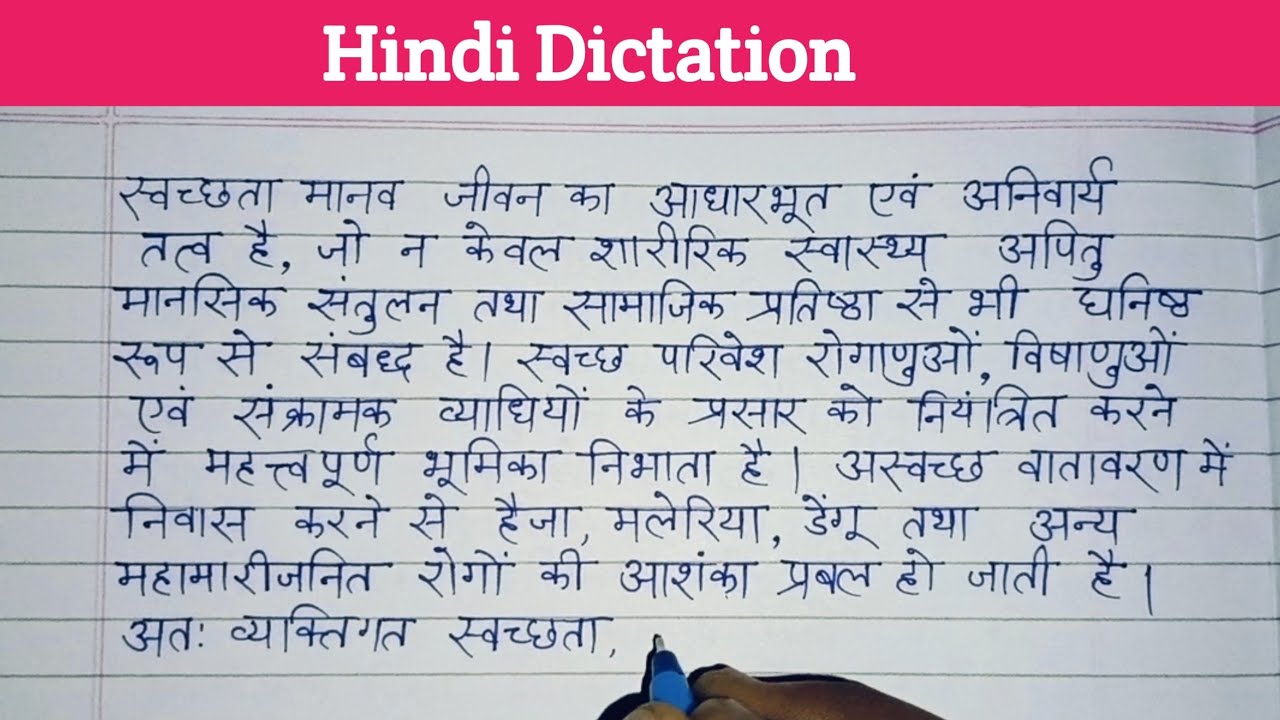 Hindi Dictation
स्वच्छता मानव जीवन का आधारभूत एवं अनिवार्य
तत्व है, जो न केवल शारीरिक स्वास्थ्य अपितु
मानसिक संतुलन तथा सामाजिक प्रतिष्ठा से भी घनिष्ठ
रूप से संबध्द है। स्वच्छ परिवेश रोगाणुओं, विषाणुओं
एवं संक्रामक व्याधियों के प्रसार को नियंत्रित करने
में महत्त्वपूर्ण भूमिका निभाता है। अस्वच्छ वातावरण में
निवास करने से हैजा, मलेरिया, डेंगू तथा अन्य
महामारीजनित रोगों की आशंका प्रबल हो जाती है।
अतः व्यक्तिगत स्वच्छता,